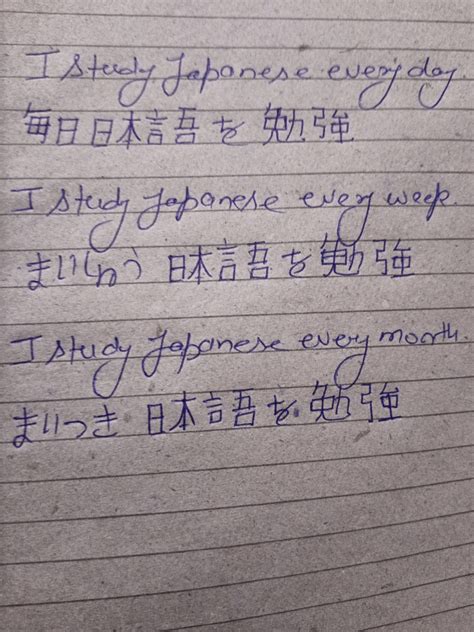 I study Japanese every day
毎日日本言吾を勉強
I study Japanese every week.
まいしゅう 日本言吾を勉強
I study Japanese every month.
まいつき 日本言吾を勉強